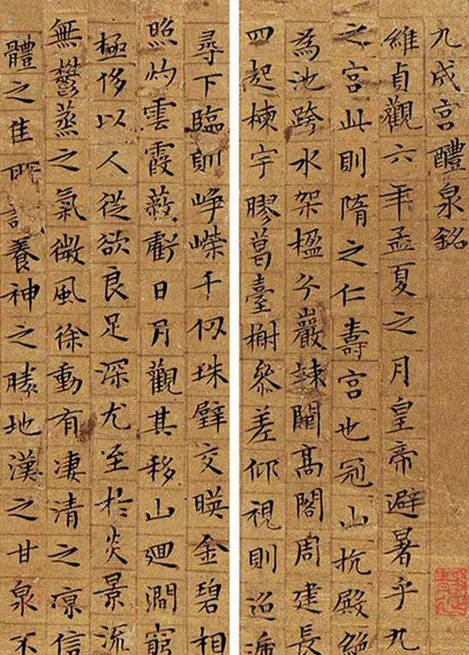 九成宮醴泉銘
維貞觀六年孟夏之月皇帝避暑乎九
之宮此則隋之仁壽宮也冠山抗殿絕
為池跨水架楹分巖竦闕高閣周建長
四起棟宇膠葛臺榭參差仰視則迢遰
尋下臨則崢嶸千仞珠璧交暎金碧相
照灼雲霞蔽虧日月觀其移山迴澗窮
極侈以人從欲良足深尤至於炎景流
無鬱蒸之氣微風徐動有淒清之涼信
體之佳所誠養神之勝地漢之甘泉不